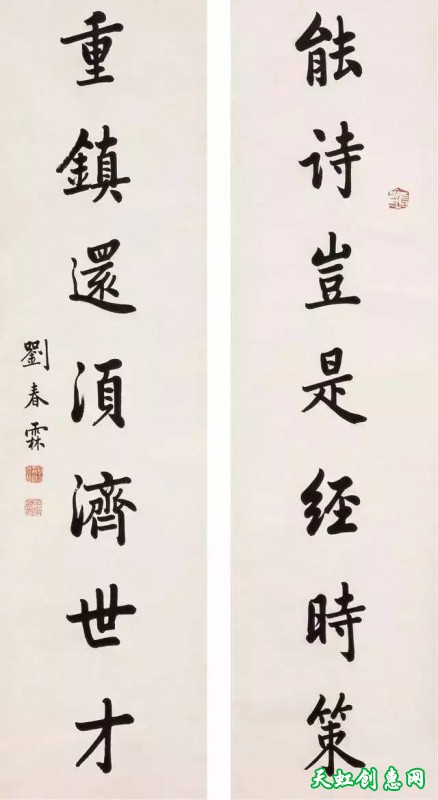 能诗豈是经時策
重鎮還須濟世才
劉春霖
天虹创惠网